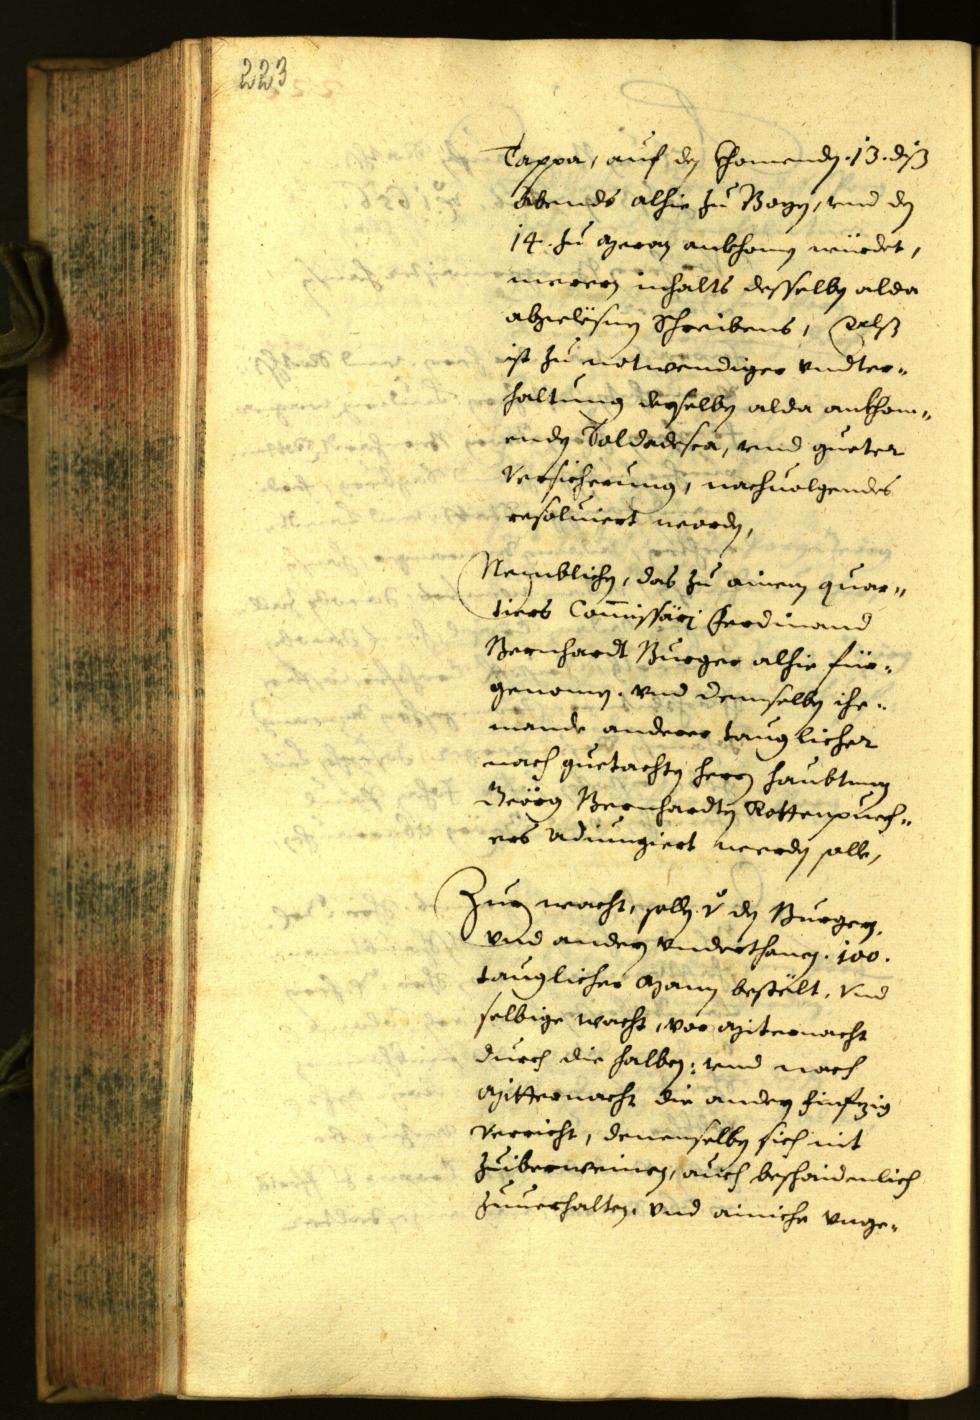 223
Tappa, auf den khomenden .13. diß
Abends alhie zu Bozen, und den
14. zu Meran ankhomen würdet,
merern inhalts desselben alda
abgelösnen Schreibens, Alß
ist zu notwendiger undter„
haltung derselben alda ankhom„
enden Soldadesca, und gueter
Versicherung, nachuolgendes
resoluiert worden,
Nemblichen, das zu ainem quar„
tiers Commissärj Ferdinand
Bernhardt Burger alhie für„
genomen. und demselben ihe„
mande anderer tauglicher
nach guetachten herrn haubtman
Geörg Bernhardten Rottenpuech„
ers Adiungiert werden solle,
Zur wacht, sollen v den Burgern,
und andern underthanen .100.
tauglicher Mann bestelt, Und
selbige wacht, vor Miternacht
durch die halben: und nach
Mitternacht die andern finfzig
Verricht, denenselben sich mit
zuiberweinen, auch beschaidenlich
zuuerhalten, und ainiche unge„